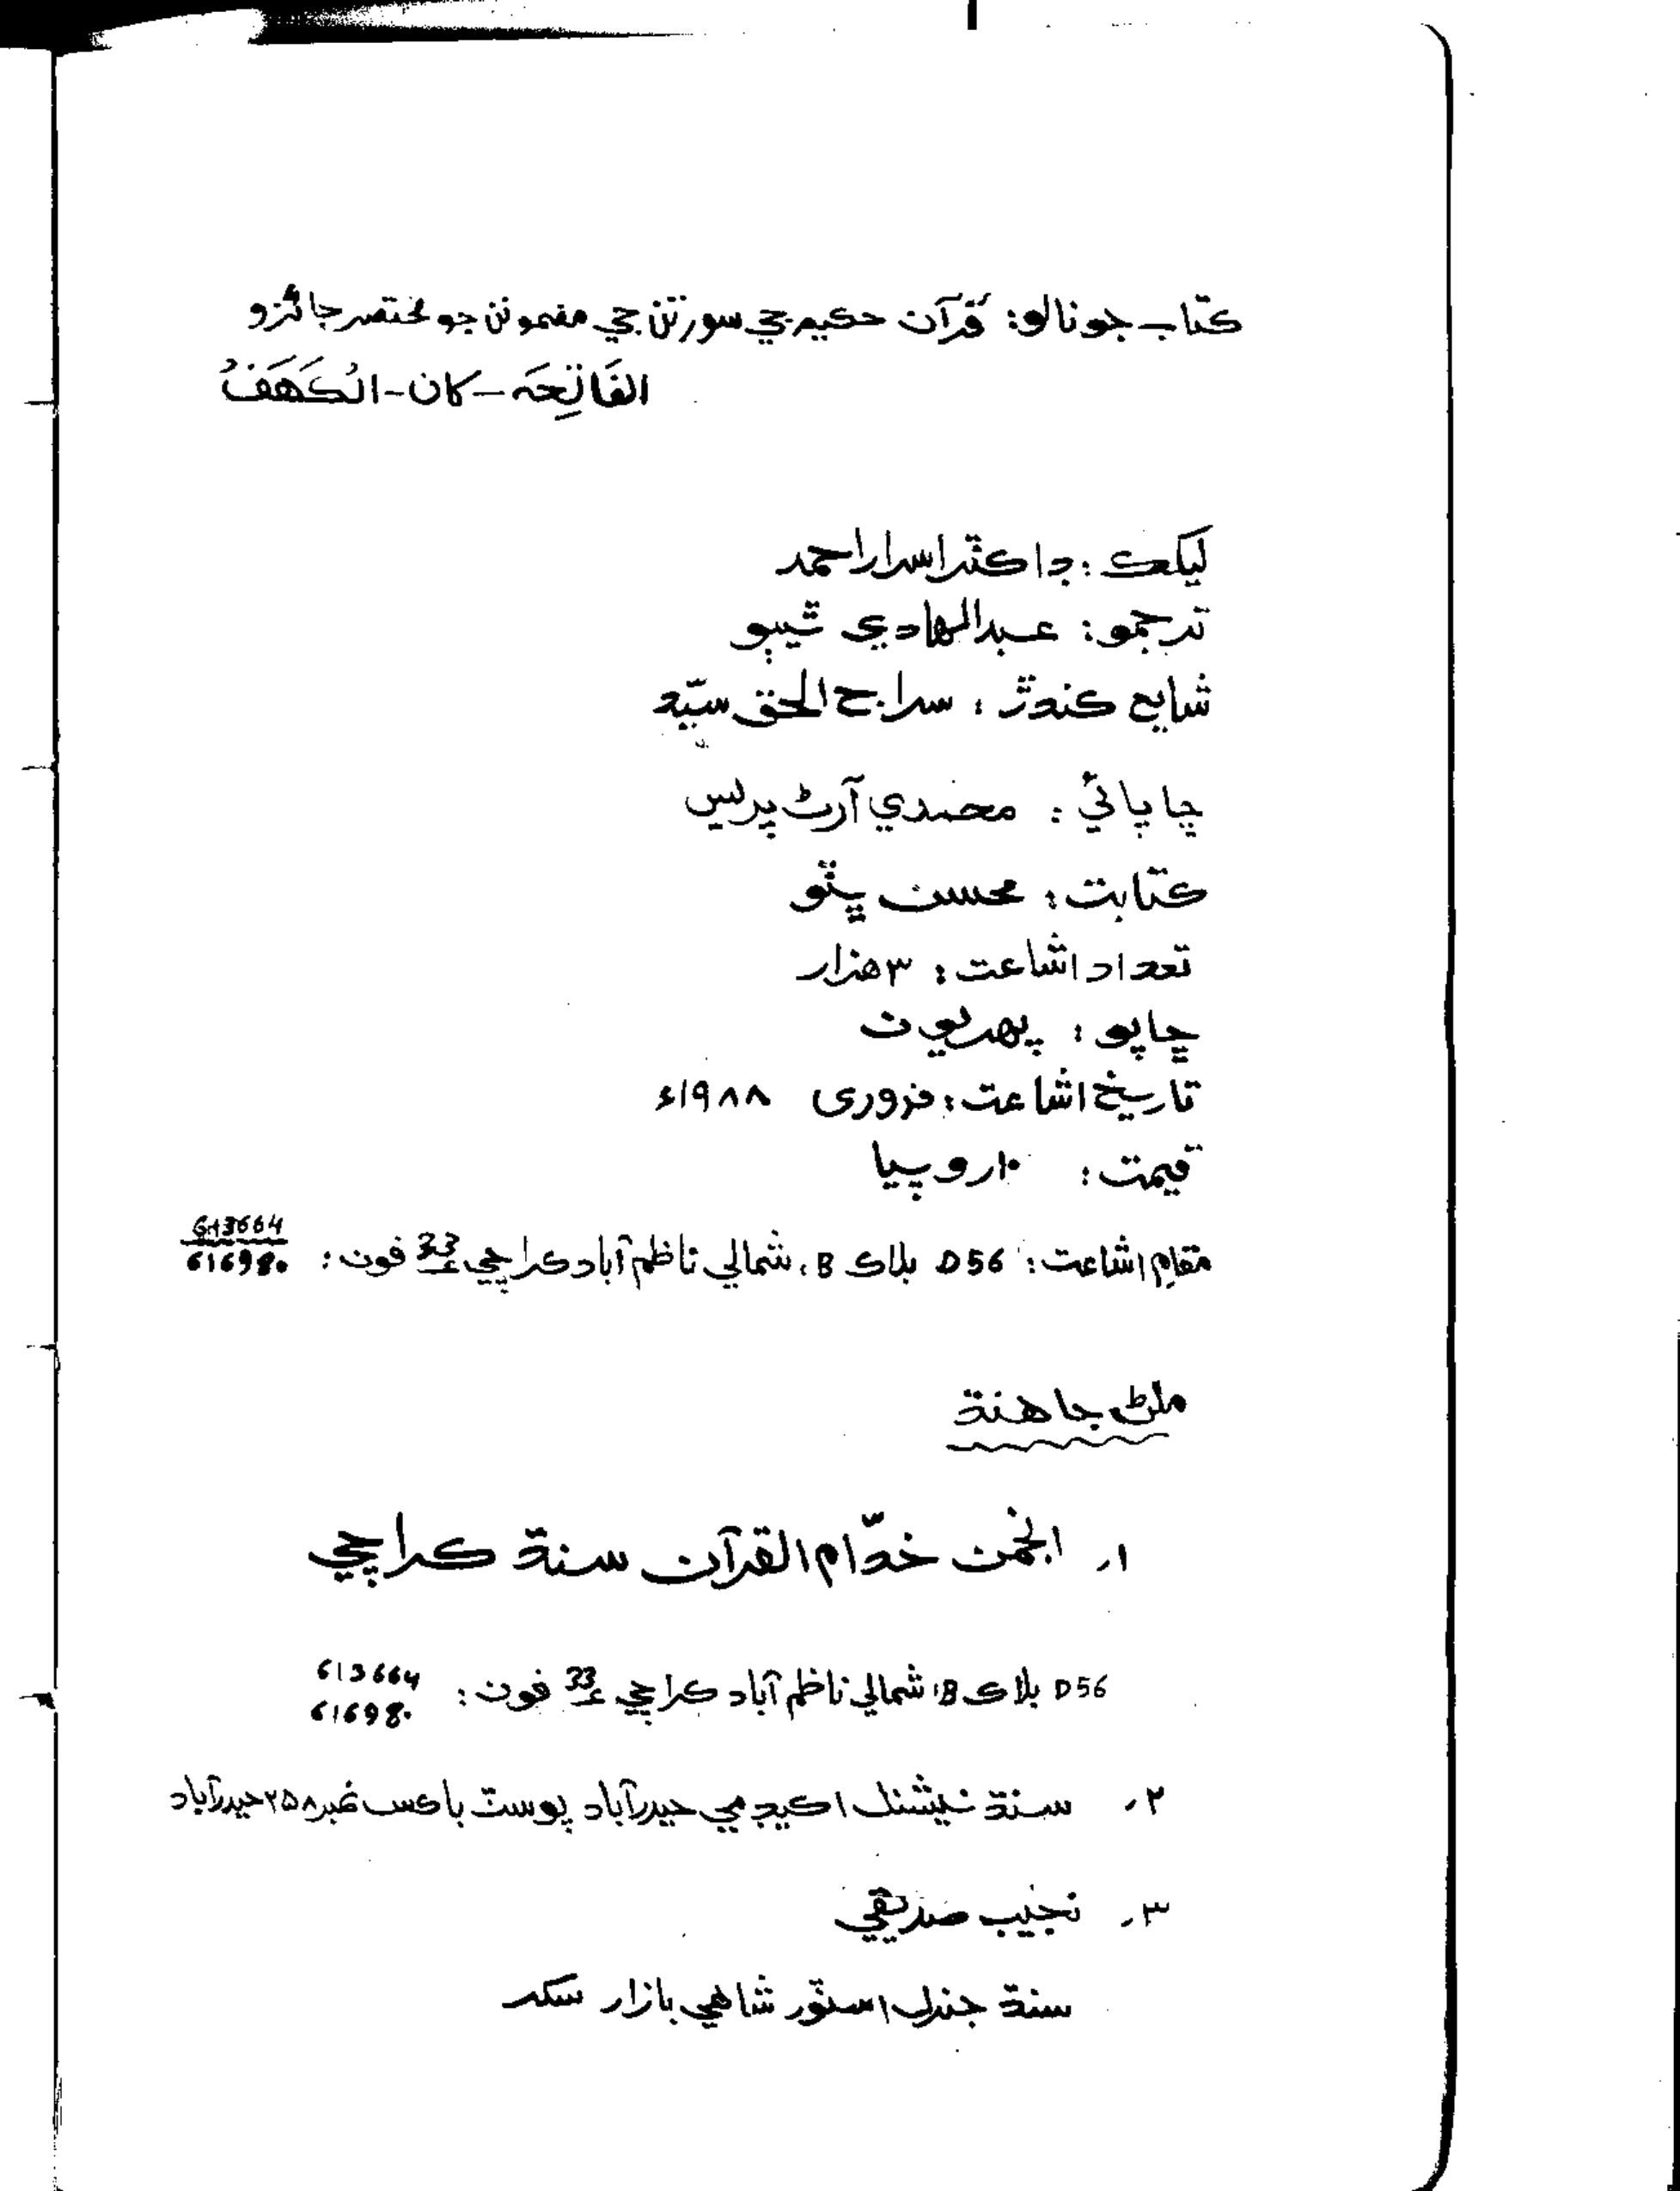 ڪتاب جو نالو: قُرآن حڪيم جي سورتن جي مضمونن جو مختصر جائزو
الفَاتِحَہ - کان - الڪَهَفُ
ليکڪ: ڊاڪٽر اسرار احمد
ترجمو: عبدالهادي ٿيٻو
شايع ڪندڙ: سراج الحق سيّد
ڇاپائي: محمدي آرٽ پريس
ڪتابت: محسن ڀٽو
تعداد اشاعت: ۳ هزار
ڇاپو: پهريون
تاريخ اشاعت: فروری ۱۹۸۸ء
قيمت: ۱۰ روپيا
مقامِ اشاعت: D56 بلاڪ B، شمالي ناظم آباد ڪراچي 33 فون: 613664 616980
ملڻ جا هنڌ
۱. انجمن خدّام القرآن سنڌ ڪراچي
D56 بلاڪ B، شمالي ناظم آباد ڪراچي 33 فون: 613664 616980
۲. سنڌ نيشنل اڪيڊمي حيدرآباد پوسٽ باڪس نمبر ۲۵۸ حيدرآباد
۳. نجيب صديقي
سنڌ جنرل اسٽور شاهي بازار سکر